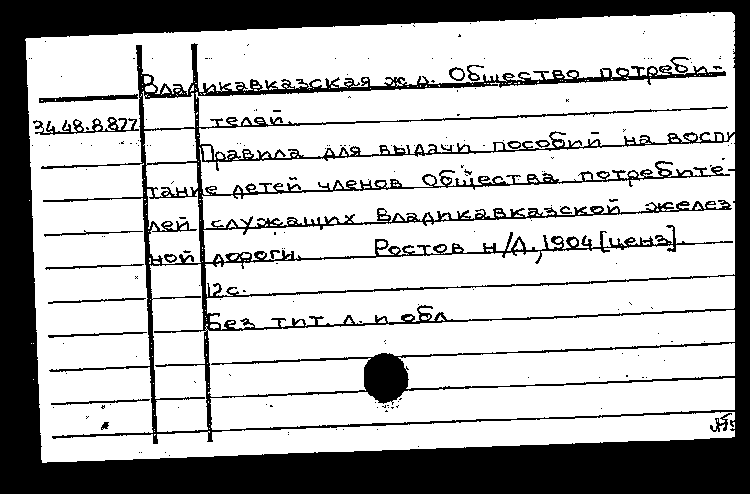 Владикавказская ж.д. Общество потреби-
34.48.8.877 телей.
Правила для выдачи пособий на воспи
тание детей членов Общества потребите-
лей служащих Владикавказской желез
ной дороги. Ростов н/Д., 1904 [ценз].
12 с.
Без тит. л. и обл.